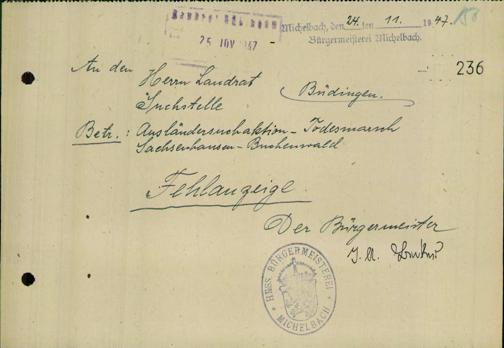 25 NOV 1947
Michelbach, den 24. ten 11. 1947.
Bürgermeisterei Michelbach.
236
An den
Herrn Landrat
Suchstelle
Büdingen.
Betr.: Ausländersuchaktion - Todesmarsch
Sachsenhausen - Buchenwald
Fehlanzeige
Der Bürgermeister
J. A.
HESS. BÜRGERMEISTEREI
MICHELBACH